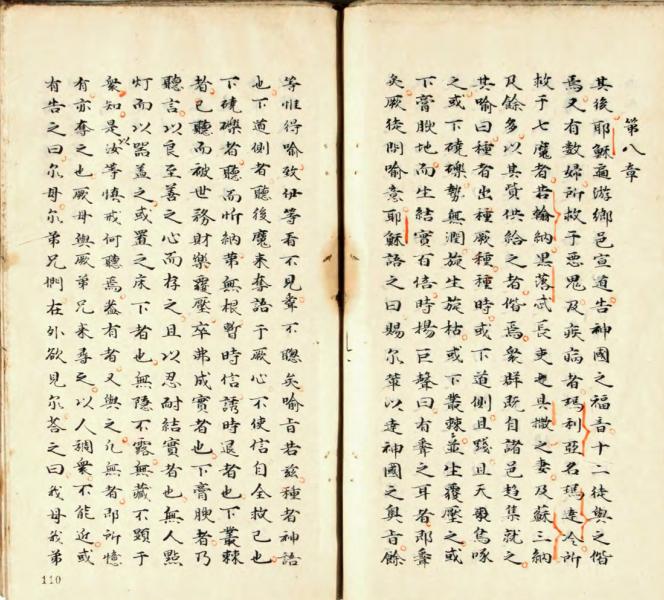 第八章
其後耶穌遍游鄉邑宣道告神國之福音十二徒與之偕
焉又有數婦所救于惡鬼及疾病者瑪利亞名瑪達冷所
救于七魔者若翰納黑落忒長吏具撒之妻及蘇三納
及餘多以其貨供給之者偕焉眾群既自諸邑趨集就之
其喻曰種者出種厥種種時或下道側且踐且天鳥啄
之或下磽礫勢無潤旋生旋枯或下叢棘並生覆壓之或
下膏腴地而生結實百倍時揚巨聲曰有聽之耳者即聽
矣厥徒問喻意耶穌語之曰賜尔輩以達神國之奧旨餘
等惟得喻致伊等看不見聽不聰矣喻旨若茲種者神語
也下道側者聽後魔来奪語于厥心不使信自全救已也
下磽礫者聽而忻納第無根暫時信誘時退者也下叢棘
者已聽而被世務財樂覆壓卒弗成實者也下膏腴者乃
聽言以良至善之心而存之且以忍耐結實者也無人點
灯而以器盖之或置之床下者也無隱不露無藏不顕于
眾知是以汝等慎戒何聽焉盖有者又與之凢無者即所憶
有亦奪之也厥母與厥弟兄来尋之以人稠眾不能近或
有告之曰尔母尔弟兄們在外欲見尔荅之曰我母我弟
110